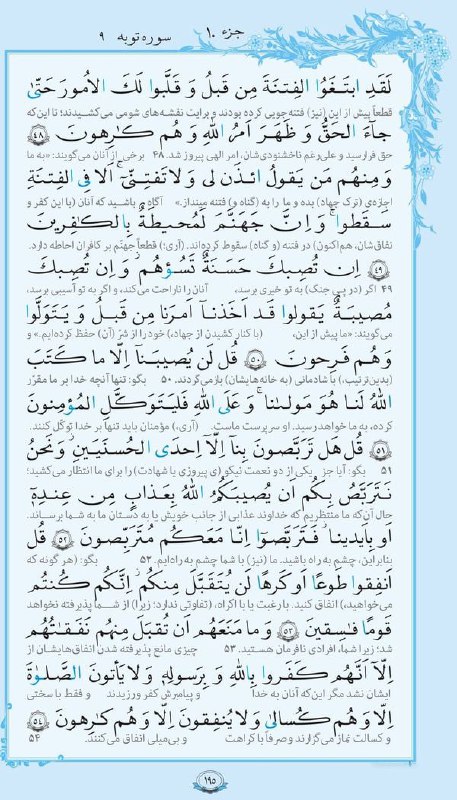 جزء ۱۰ سوره توبه ۹
لَقَدِ ابتَغَوُا الفِتنَةَ مِن قَبلُ وَ قَلَّبوا لَكَ الاُمورَ حَتّیٰ
قطعاً پیش از این (نیز) فتنه‌جویی کرده بودند و برایت نقشه‌های شومی می‌کشیدند؛ تا این‌که
جآءَ الحَقُّ وَ ظَهَرَ اَمرُ اللهِ وَ هُم کٰرِهونَ ﴿۴۸﴾
حق فرارسید و علی‌رغم ناخشنودی‌شان، امر الهی پیروز شد. ۴۸ برخی از آنان می‌گویند: «به ما
وَ مِنهُم مَن یَقولُ ائذَن لی وَ لا تَفتِنّیٓ ۚ اَلا فِی الفِتنَةِ
اجازه‌ی (ترک جهاد) بده و ما را به (گناه و) فتنه مینداز.» آگاه باشید که آنان (با این کفر و
سَقَطوا ۗ وَ اِنَّ جَهَنَّمَ لَمُحیطَةٌ بِالکٰفِرینَ
نفاق‌شان، هم‌اکنون) در فتنه (و گناه) سقوط کرده‌اند. (آری؛) قطعاً جهنّم بر کافران احاطه دارد.
﴿۴۹﴾ اِن تُصِبکَ حَسَنَةٌ تَسُؤهُم ۖ وَ اِن تُصِبکَ
۴۹ اگر (در پی جنگ) به تو خیری برسد، آنان را ناراحت می‌کند، و اگر به تو آسیبی برسد،
مُصیبَةٌ یَقولوا قَد اَخَذنآ اَمرَنا مِن قَبلُ وَ یَتَوَلَّوا
می‌گویند: «ما پیش از این، (با کنار کشیدن از جهاد،) خود را از شرّ (آن) حفظ کرده‌ایم.» و
وَ هُم فَرِحونَ ﴿۵۰﴾ قُل لَن یُصیبَنآ اِلّا ما کَتَبَ
(بدین‌ترتیب،) با شادمانی (به خانه‌هایشان) بازمی‌گردند. ۵۰ بگو: تنها آنچه خدا بر ما مقرّر
اللهُ لَنا هُوَ مَولىٰنا ۚ وَ عَلَی اللهِ فَلیَتَوَکَّلِ المُؤمِنونَ
کرده، به ما خواهد رسید. او سرپرست ماست. (آری،) مؤمنان باید تنها بر خدا توکّل کنند.
﴿۵۱﴾ قُل هَل تَرَبَّصونَ بِنآ اِلّآ اِحدَی الحُسنَیَینِ ۖ وَ نَحنُ
۵۱ بگو: آیا جز یکی از دو نعمت نیکو (ی پیروزی یا شهادت) را برای ما انتظار می‌کشید؛
نَتَرَبَّصُ بِکُم اَن یُصیبَکُمُ اللهُ بِعَذابٍ مِن عِندِهٖٓ
حال آن‌که ما منتظریم که خداوند عذابی از جانب خویش یا به دستان ما به شما برساند.
اَو بِاَیدینا ۖ فَتَرَبَّصوٓا اِنّا مَعَکُم مُتَرَبِّصونَ ﴿۵۲﴾ قُل
بنابراین، چشم به راه باشید. ما (نیز) با شما چشم به راه‌ایم. ۵۲ بگو: (هر گونه که
اَنفِقوا طَوعًا اَو کَرهًا لَن یُتَقَبَّلَ مِنکُم ۖ اِنَّکُم کُنتُم
می‌خواهید،) انفاق کنید. با رغبت یا با اکراه، (تفاوتی ندارد: زیرا) از شما پذیرفته نخواهد
قَومًا فٰسِقینَ ﴿۵۳﴾ وَ ما مَنَعَهُم اَن تُقبَلَ مِنهُم نَفَقٰتُهُم
شد؛ زیرا شما، افرادی نافرمان هستید. ۵۳ چیزی مانع پذیرفته شدن انفاق‌هایشان از
اِلّآ اَنَّهُم کَفَروا بِاللهِ وَ بِرَسولِهٖ وَ لا یَأتونَ الصَّلوٰةَ
ایشان نشد مگر این‌که آنان به خدا و پیامبرش کفر ورزیدند و فقط با سختی
اِلّا وَ هُم کُسالیٰ وَ لا یُنفِقونَ اِلّا وَ هُم کٰرِهونَ ﴿۵۴﴾
و کسالت نماز می‌گزارند و صرفاً با کراهت و بی‌میلی انفاق می‌کنند. ۵۴
۱۹۵